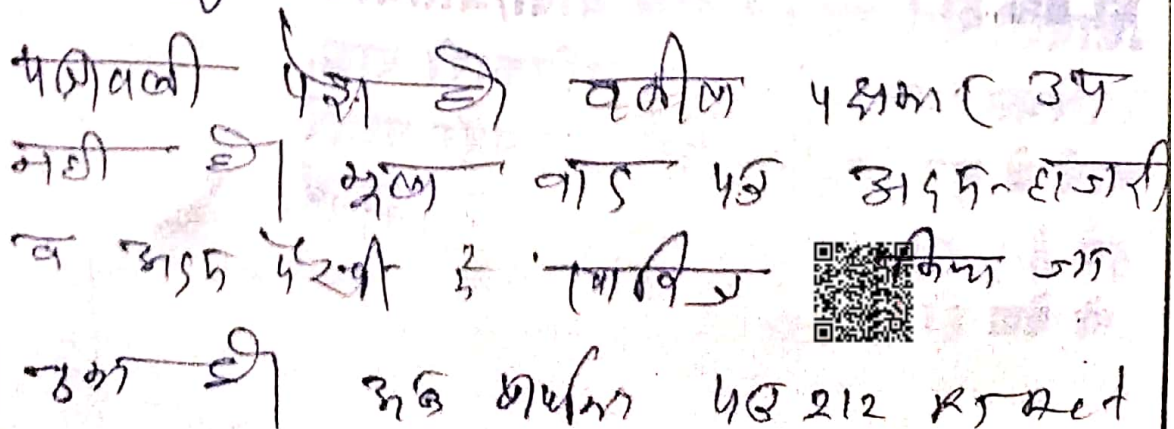 पत्रावली पेश हो वकील पक्षकार उप
नही है। मूल वाद पत्र अदम हाजरी
व अदम पैरवी में खारिज किया जा
चुका है। अतः प्रार्थना पत्र 212 RT Act